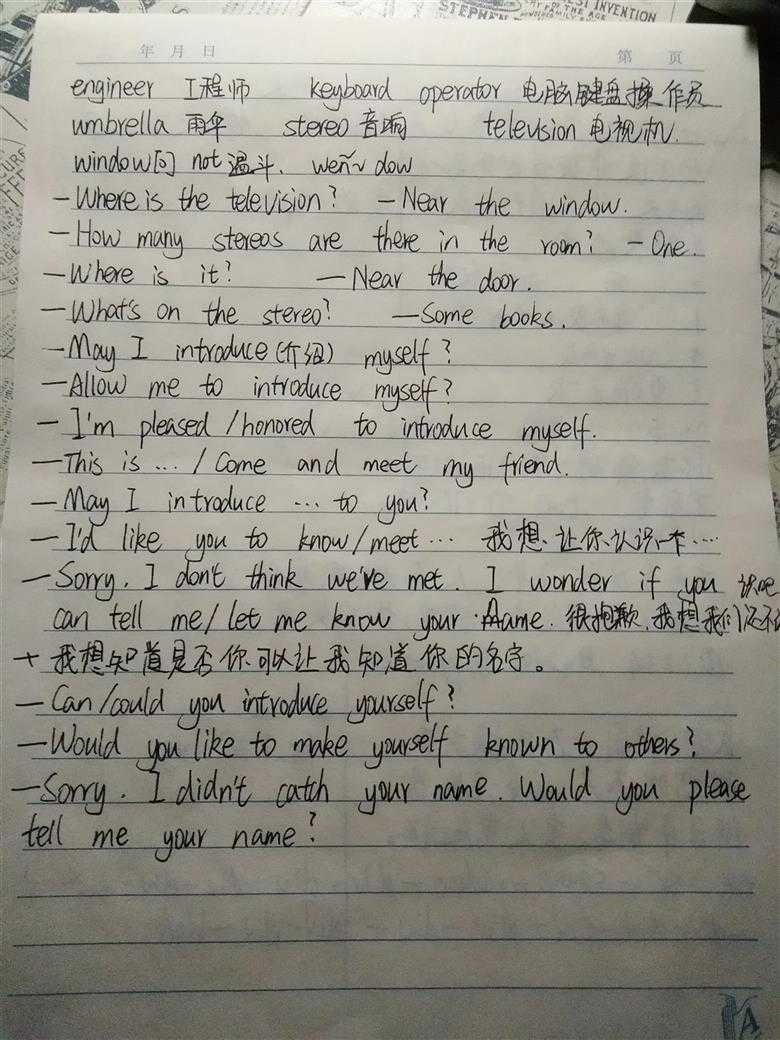 STEPHEN
ST INVENTION
OF THE AGE
年 月 日 第 页
engineer 工程师 keyboard operator 电脑键盘操作员
umbrella 雨伞 stereo 音响 television 电视机.
window问 not 漏斗. wen~dow
-Where is the television? -Near the window.
-How many stereos are there in the room? -One.
-Where is it? -Near the door.
-What's on the stereo? -Some books.
-May I introduce(介绍) myself?
-Allow me to introduce myself?
-I'm pleased/honored to introduce myself.
-This is .../Come and meet my friend.
-May I introduce ... to you?
-I'd like you to know/meet... 我想、让你认识一个....
-Sorry. I don't think we've met. I wonder if you
can tell me/let me know your name. 很抱歉,我想我们还不认识
+ 我想知道是否你可以让我知道你的名字。
-Can/could you introduce yourself?
-Would you like to make yourself known to others?
-Sorry. I didn't catch your name. Would you please
tell me your name?